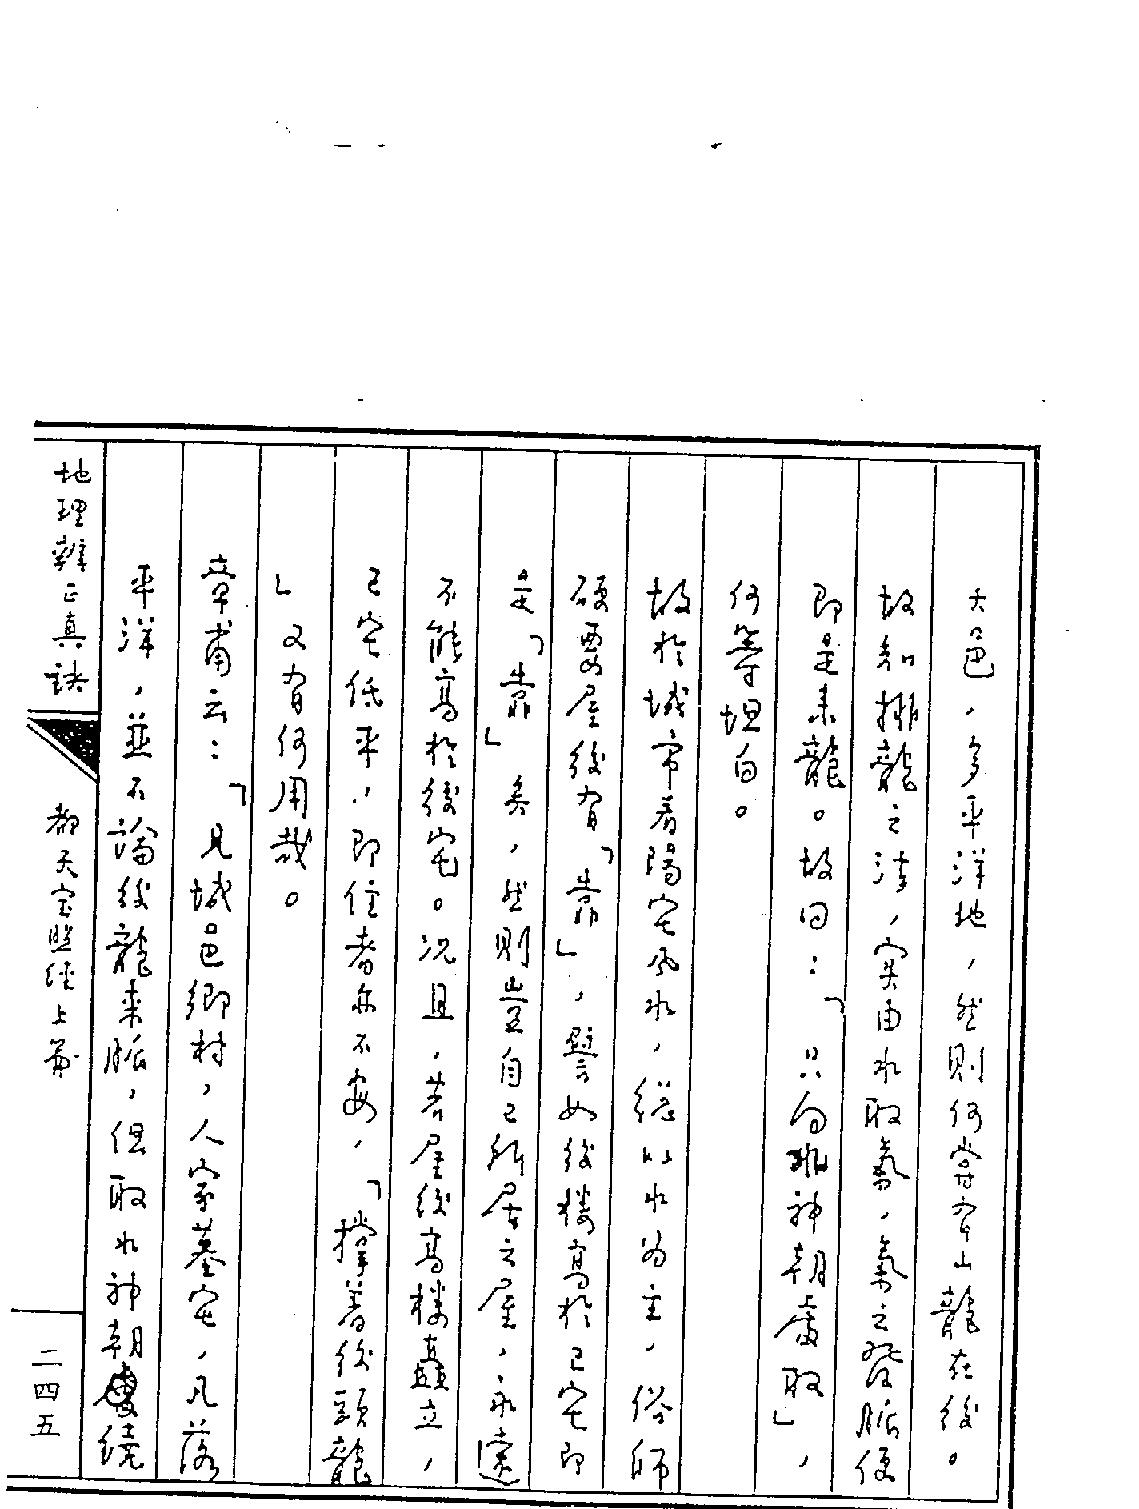 天邑，多平洋地，然則何嘗有山龍在後。
故知撥龍之法，實由水取氣，氣之發脈便
即是來龍。故曰：「只向水神朝處取」，
何等坦白。
故於城市看陽宅風水，總以水為主，俗師
硬要屋後有「靠」，譬如後樓高於己宅即
是「靠」矣，然則豈自己所居之屋，永遠
不能高於後宅。況且，若屋後高樓矗立，
己宅低平，即住者亦不安，「撐著後頭龍
」又有何用哉。
章甫云：「見城邑鄉村，人家墓宅，凡落
平洋，並不論後龍來脈，但取水神朝繞
地理辨正真訣
都天宝照經上篇
二四五